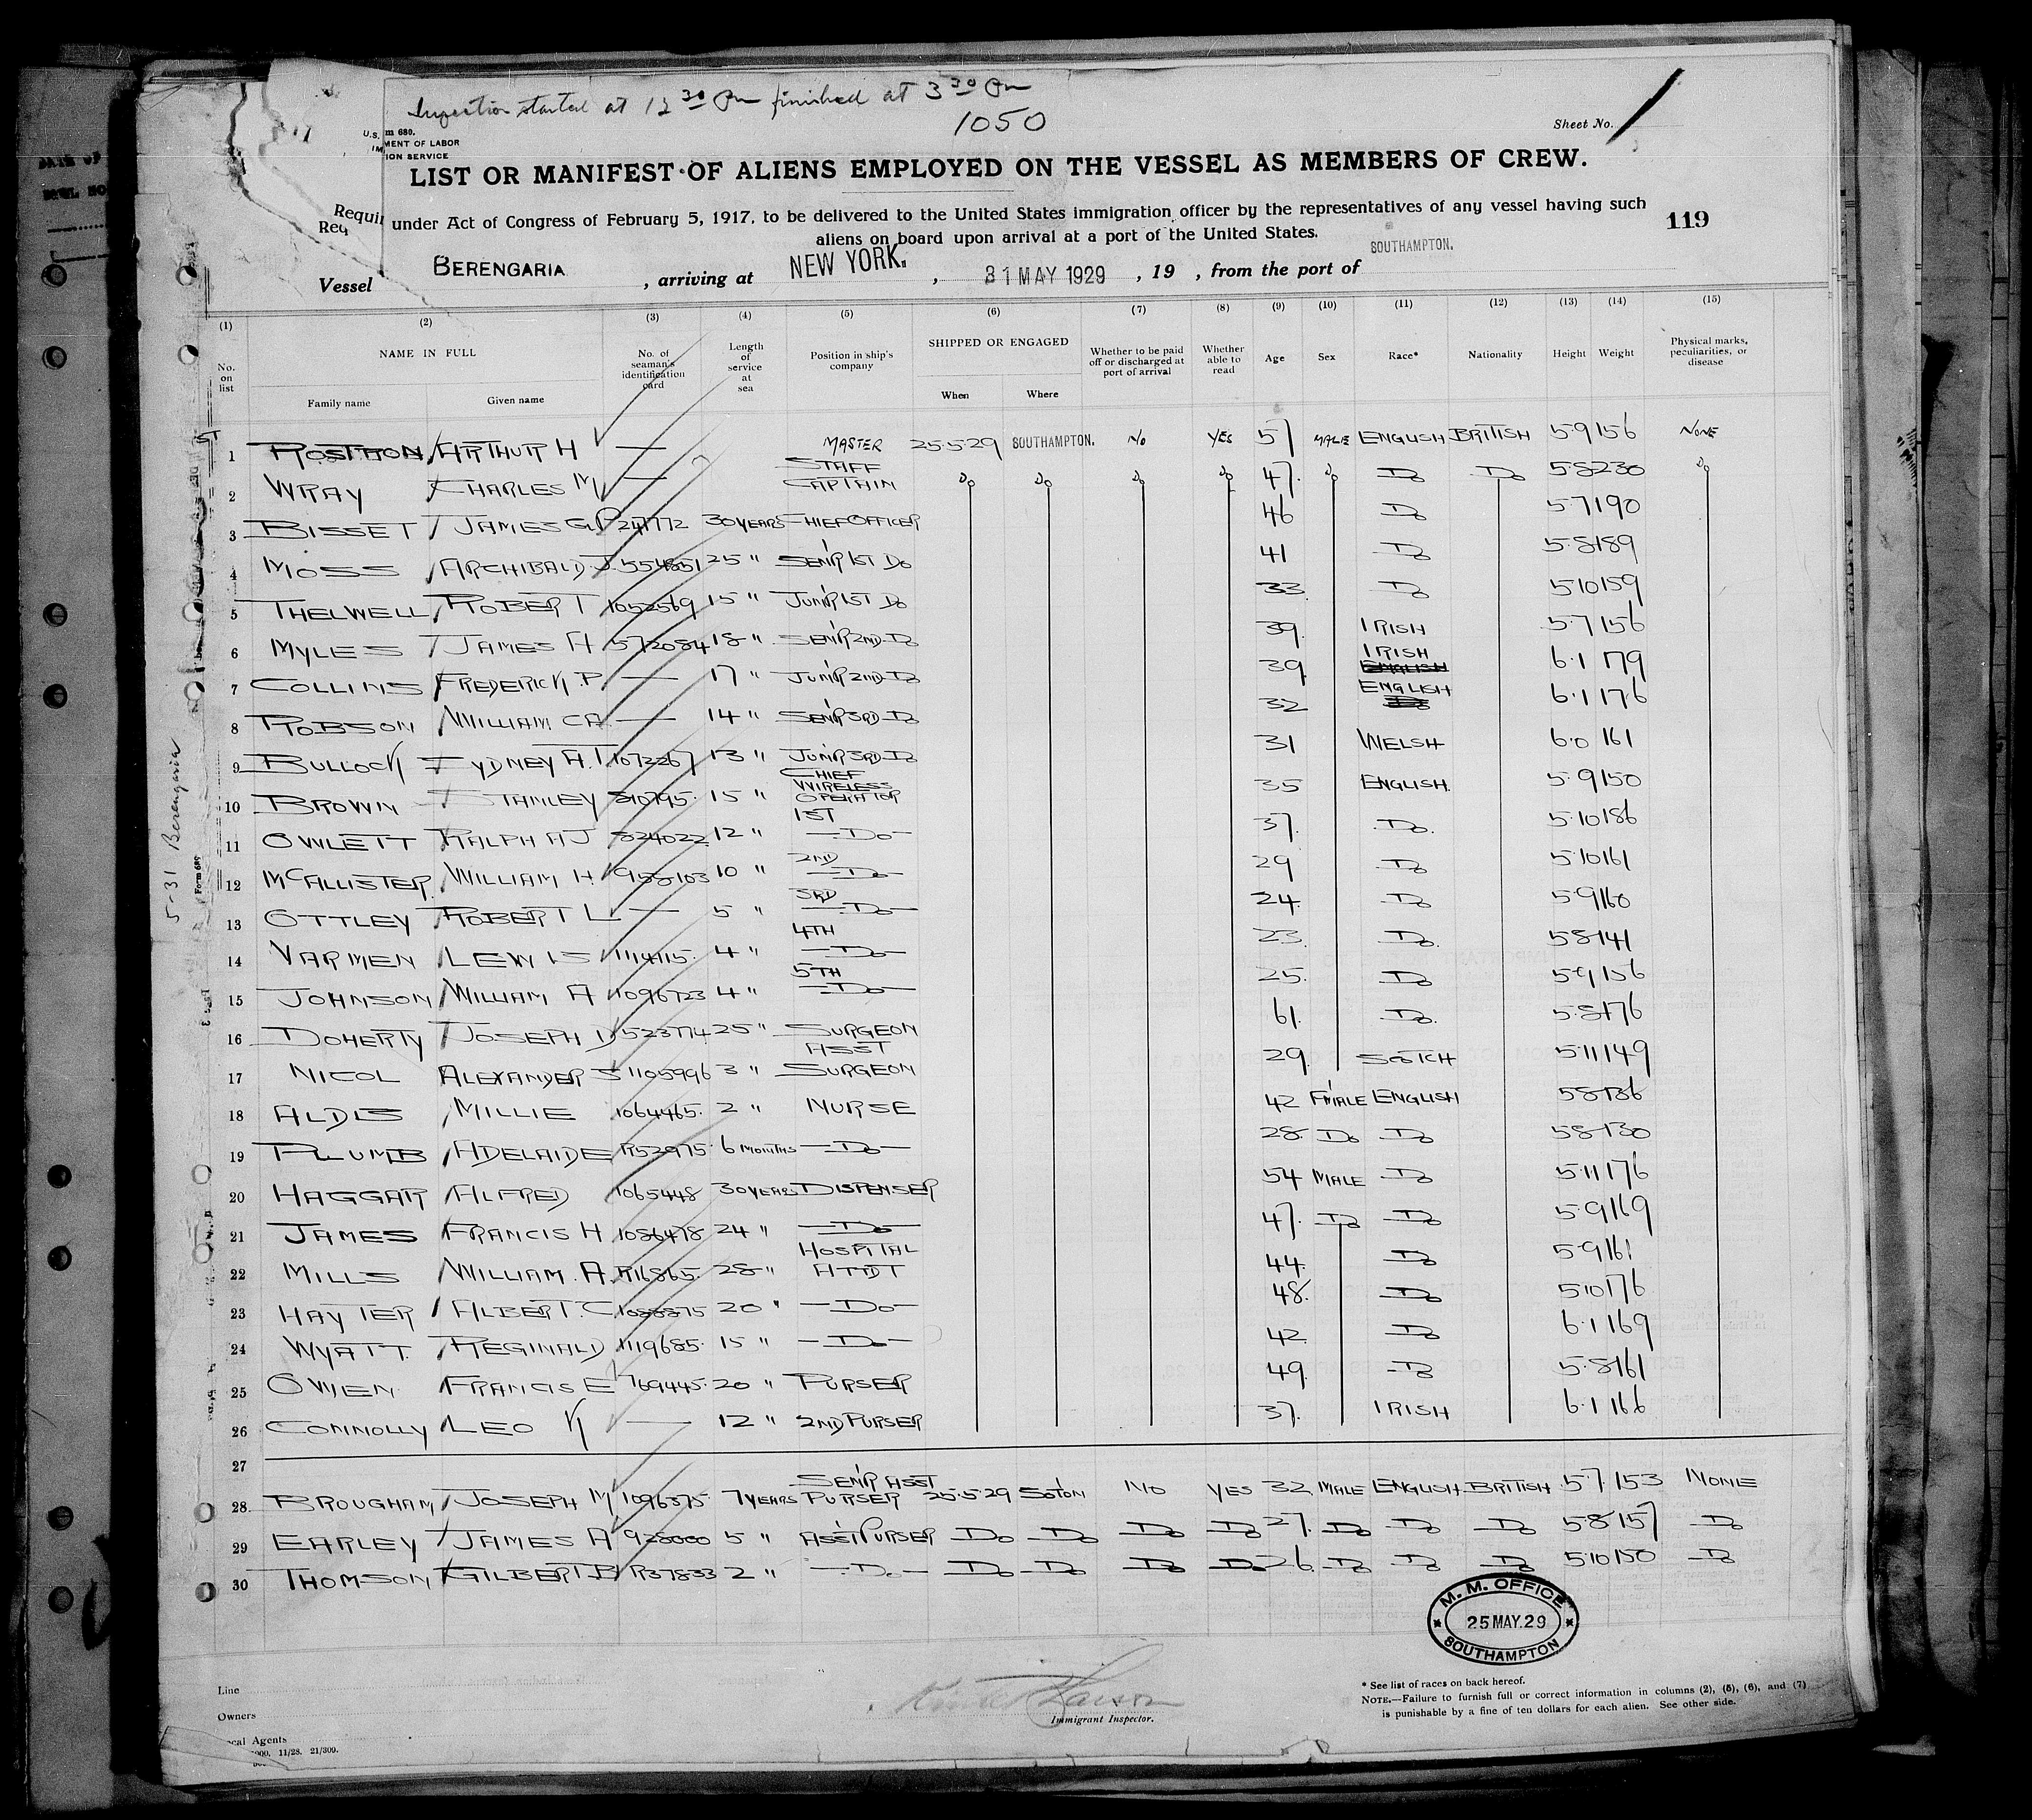 Inspection started at 12 30 Pm finished at 3 30 Pm
1050
Sheet No. 1
U.S. m 680.
MENT OF LABOR
IM ION SERVICE
LIST OR MANIFEST OF ALIENS EMPLOYED ON THE VESSEL AS MEMBERS OF CREW.
Requir
Req under Act of Congress of February 5, 1917, to be delivered to the United States immigration officer by the representatives of any vessel having such
aliens on board upon arrival at a port of the United States.
119
Vessel BERENGARIA , arriving at NEW YORK. , 31 MAY 1929 , 19 , from the port of SOUTHAMPTON.
(1) (2) (3) (4) (5) (6) (7) (8) (9) (10) (11) (12) (13) (14) (15)
No. on list NAME IN FULL Family name Given name No. of seaman's identification card Length of service at sea Position in ship's company SHIPPED OR ENGAGED When Where Whether to be paid off or discharged at port of arrival Whether able to read Age Sex Race* Nationality Height Weight Physical marks, peculiarities, or disease
1 ROSTRON ARTHUR H — MASTER 25.5.29 SOUTHAMPTON. NO YES 57 MALE ENGLISH BRITISH 5.9 156 NONE
2 WRAY CHARLES M — STAFF CAPTAIN Do Do Do Do 47. Do Do Do 5.8 230 Do
3 BISSET JAMES G.P 247772 30 YEARS CHIEF OFFICER 46 Do 5.7 190
4 MOSS ARCHIBALD J. 554851 25 " SEN'R 1ST Do 41 Do 5.8 189
5 THELWELL ROBERT 1052569 15 " JUN'R 1ST Do 33. Do 5.10 159
6 MYLES JAMES H 572084 18 " SEN'R 2ND Do 39. IRISH 5.7 156
7 COLLINS FREDERICK P. — 17 " JUN'R 2ND Do 39 IRISH ENGLISH 6.1 179
8 ROBSON WILLIAM C A — 14 " SEN'R 3RD Do 32 ENGLISH Do 6.1 176
9 BULLOCK SYDNEY A.T 1073267 13 " JUN'R 3RD Do 31 WELSH 6.0 161
10 BROWN STANLEY 810795. 15 " CHIEF WIRELESS OPERATOR 35 ENGLISH. 5.9 150
11 OWLETT RALPH A J 824022 12 " 1ST —Do— 37. Do. 5.10 186
12 McALLISTER. WILLIAM H. 958103 10 " 2ND —Do— 29 Do 5.10 161
13 OTTLEY ROBERT L — 5 " 3RD —Do— 24. Do 5.9 160
14 VARMEN LEWIS 1114115. 4 " 4TH —Do— 23. Do. 5.8 141
15 JOHNSON WILLIAM A 1096723 4 " 5TH —Do— 25. Do 5.9 156
16 DOHERTY JOSEPH D 523774 25 " SURGEON 61. Do. 5.8 176
17 NICOL ALEXANDER S 1105996 3 " ASST SURGEON 29. SCOTCH 5.11 149
18 ALDIS MILLIE 1064465. 2 " NURSE 42 F'MALE ENGLISH 5.8 136
19 PLUMB ADELAIDE R52975. 6 MONTHS —Do— 28. Do Do 5.8 130
20 HAGGAR ALFRED 1065448 30 YEARS DISPENSER 54 MALE Do 5.11 176
21 JAMES FRANCIS H 1086478 24 " —Do— 47. Do Do 5.9 169
22 MILLS WILLIAM. A. R16865. 28 " HOSPITAL ATTDT 44. Do 5.9 161
23 HAYTER ALBERT. C. 1088875 20 " —Do— 48. Do 5.10 176
24 WYATT. REGINALD 1119685. 15 " —Do— 42. Do 6.1 169
25 OWEN FRANCIS E 769445. 20 " PURSER 49. Do 5.8 161
26 CONNOLLY LEO K — 12 " 2ND PURSER 37. IRISH 6.1 166
27
28. BROUGHAM JOSEPH M 1096375 7 YEARS SEN'R ASST PURSER 25.5.29 SOTON NO YES 32. MALE ENGLISH BRITISH 5.7 153 NONE
29 EARLEY JAMES A 928000 5 " ASST PURSER Do Do Do Do 27. Do Do Do 5.8 157 Do
30 THOMSON GILBERT B R37833 2 " —Do.— Do Do Do Do. 26. Do Do Do 5.10 150 Do
5-31 Berengaria
Form 689
M. M. OFFICE
25 MAY. 29
SOUTHAMPTON
Line
Owners
cal Agents
000. 11/28. 21/309.
Larson
Immigrant Inspector.
* See list of races on back hereof.
NOTE.—Failure to furnish full or correct information in columns (2), (5), (6), and (7)
is punishable by a fine of ten dollars for each alien. See other side.